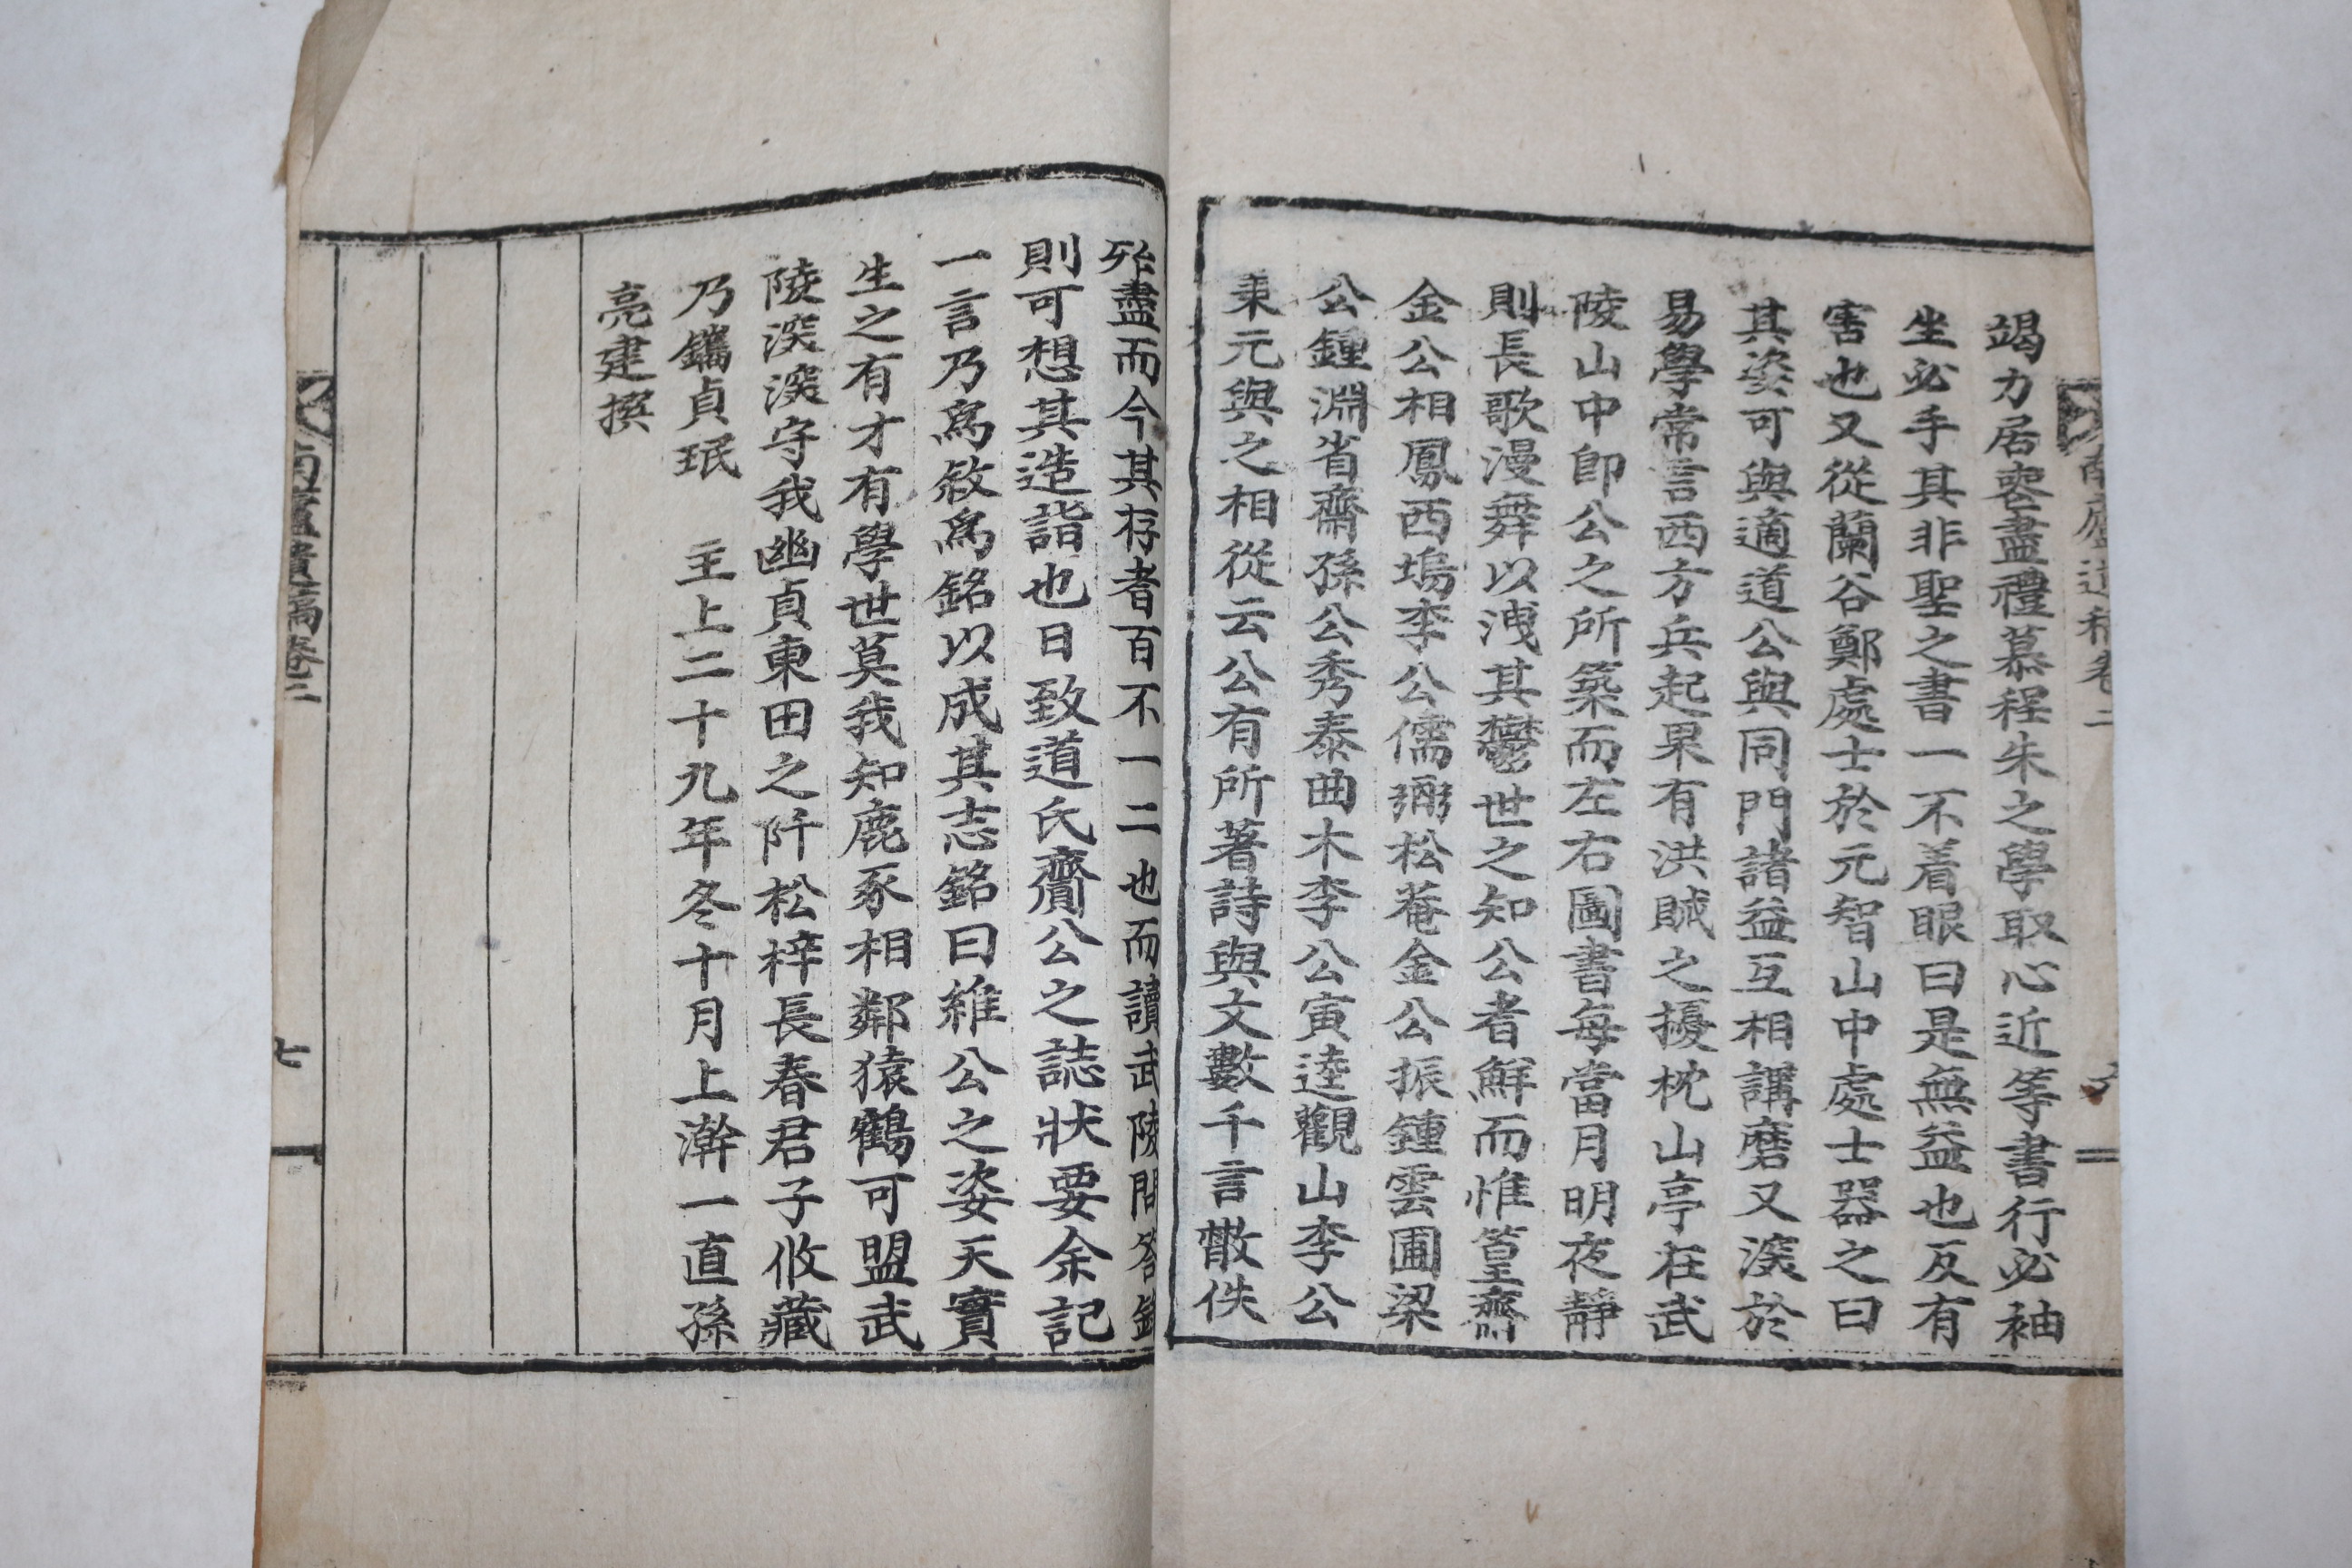 南廬遺稿卷二
六
竭力居喪盡禮慕程朱之學取心近等書行必袖
坐必手其非聖之書一不着眼曰是無益也反有
害也又從蘭谷鄭處士於元智山中處士器之曰
其姿可與適道公與同門諸益互相講磨又深於
易學常言西方兵起果有洪賊之擾枕山亭在武
陵山中卽公之所築而左右圖書每當月明夜靜
則長歌漫舞以洩其鬱世之知公者鮮而惟篁齋
金公相鳳西塢李公儒弼松菴金公振鍾雲圃梁
公鍾淵省齋孫公秀泰曲木李公寅逵觀山李公
秉元與之相從云公有所著詩與文數千言散佚
殆盡而今其存者百不一二也而讀武陵問答錄
則可想其造詣也日致道氏齎公之誌狀要余記
一言乃爲敘爲銘以成其志銘曰維公之姿天實
生之有才有學世莫我知鹿豕相鄰猿鶴可盟武
陵深深守我幽貞東田之阡松梓長春君子攸藏
乃鐫貞珉 主上二十九年冬十月上澣一直孫
亮建撰
南廬遺稿卷二
七